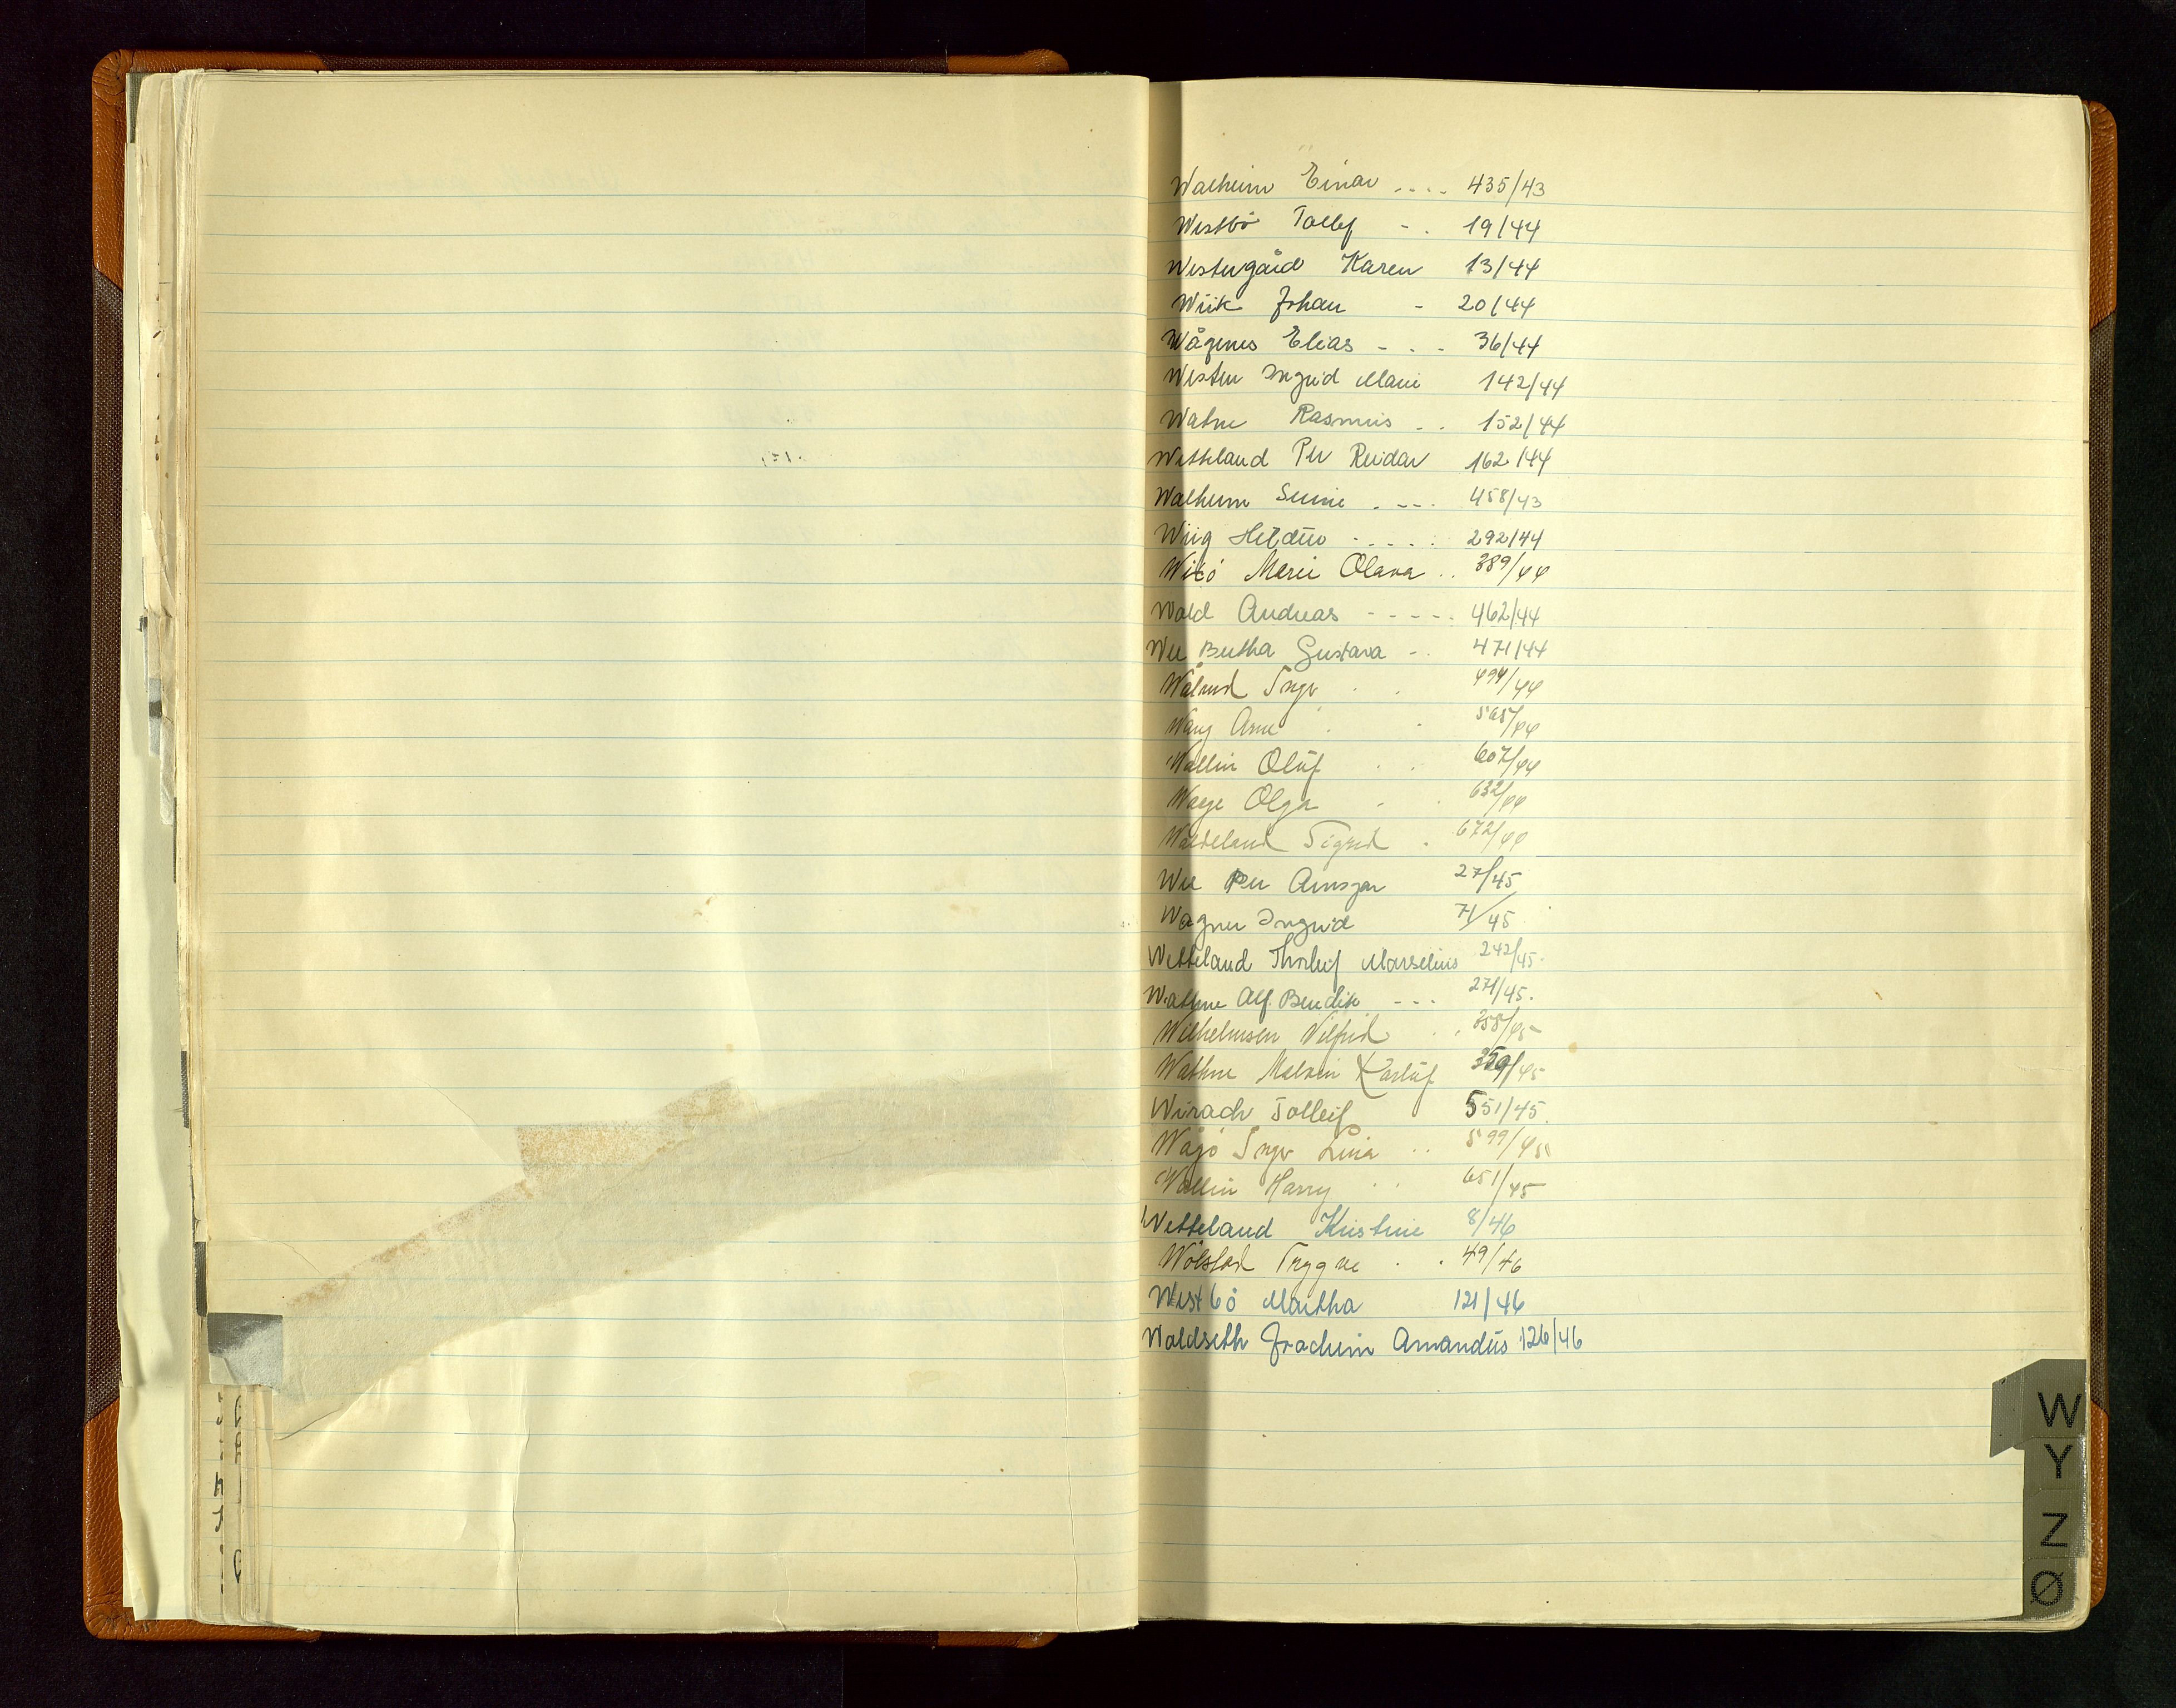 Walheim Einar .... 435/43
Westbö Tollef - . 19/44
Westergård Karen 13/44
Wiik Johan - 20/44
Wågenes Elias - . - 36/44
Westen Ingrid Marie 142/44
Watne Rasmus - . 152/44
Wetteland Per Reidar 162/44
Walheim Seline . --- 458/43
Wiig Heldur - . . . . 292/44
Wikö Marie Olava .. 389/44
Wold Andreas - - - - . 462/44
Wee Bertha Gustava - . 471/44
Wålund Inger . . 494/44
Wang Arne . . 565/44
Wallin Oluf . . 607/44
Waage Olga . . 632/44
Wadeland Sigrid . 672/44
Wee Per Ansgar 27/45
Wagner Ingrid 71/45
Wetteland Thorleif Marselius 242/45.
Wathne Alf. Bendik --- 271/45.
Wilhelmsen Vilfrid . . 358/45
Wathne Melvin Karluf 359/45
Wirach Tolleif 551/45.
Wågö Inger Lina .. 599/45
Wallin Harry . . 651/45
Wetteland Kristine 8/46
Wölstad Trygve . . 49/46
Westbö Martha 121/46
Waldseth Joachim Amandus 126/46
W
Y
Z
Ø